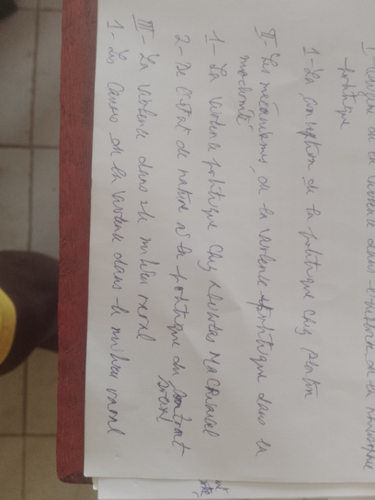 de la violence dans l'histoire de la philosophie
politique
1- La conception de la politique chez Platon
II- Les mécanismes de la violence politique dans la
modernité
1- La violence politique chez Nicolas Machiavel
2- De l'état de nature à la politique du Contrat
Social
III- La violence dans le milieu rural
1- Les Causes de la violence dans le milieu rural